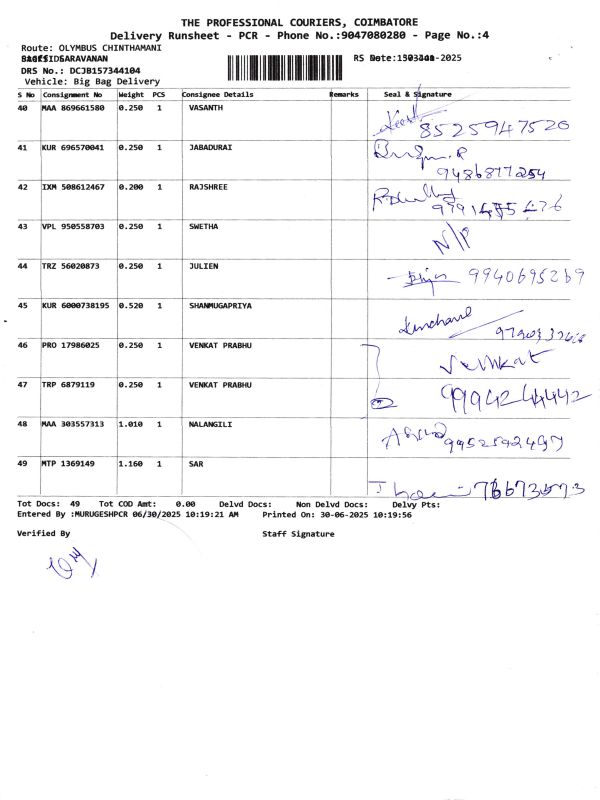 THE PROFESSIONAL COURIERS, COIMBATORE
Delivery Runsheet - PCR - Phone No.:9047080280 - Page No.:4
Route: OLYMBUS CHINTHAMANI
SARAVANAN
RS Date: -2025
DRS No.: DCJB157344104
Vehicle: Big Bag Delivery
S No Consignment No Weight PCS Consignee Details Remarks Seal & Signature
40 MAA 869661580 0.250 1 VASANTH
8525947520
41 KUR 696570041 0.250 1 JABADURAI
9486877254
42 IXM 508612467 0.200 1 RAJSHREE
43 VPL 950558703 0.250 1 SWETHA N/P
44 TRZ 56020873 0.250 1 JULIEN
9940695269
45 KUR 6000738195 0.520 1 SHANMUGAPRIYA
46 PRO 17986025 0.250 1 VENKAT PRABHU Venkat
47 TRP 6879119 0.250 1 VENKAT PRABHU
9994244442
48 MAA 303557313 1.010 1 NALANGILI
9952592497
49 MTP 1369149 1.160 1 SAR
Tot Docs: 49 Tot COD Amt: 0.00 Delvd Docs: Non Delvd Docs: Delvy Pts:
Entered By :MURUGESHPCR 06/30/2025 10:19:21 AM Printed On: 30-06-2025 10:19:56
Verified By Staff Signature